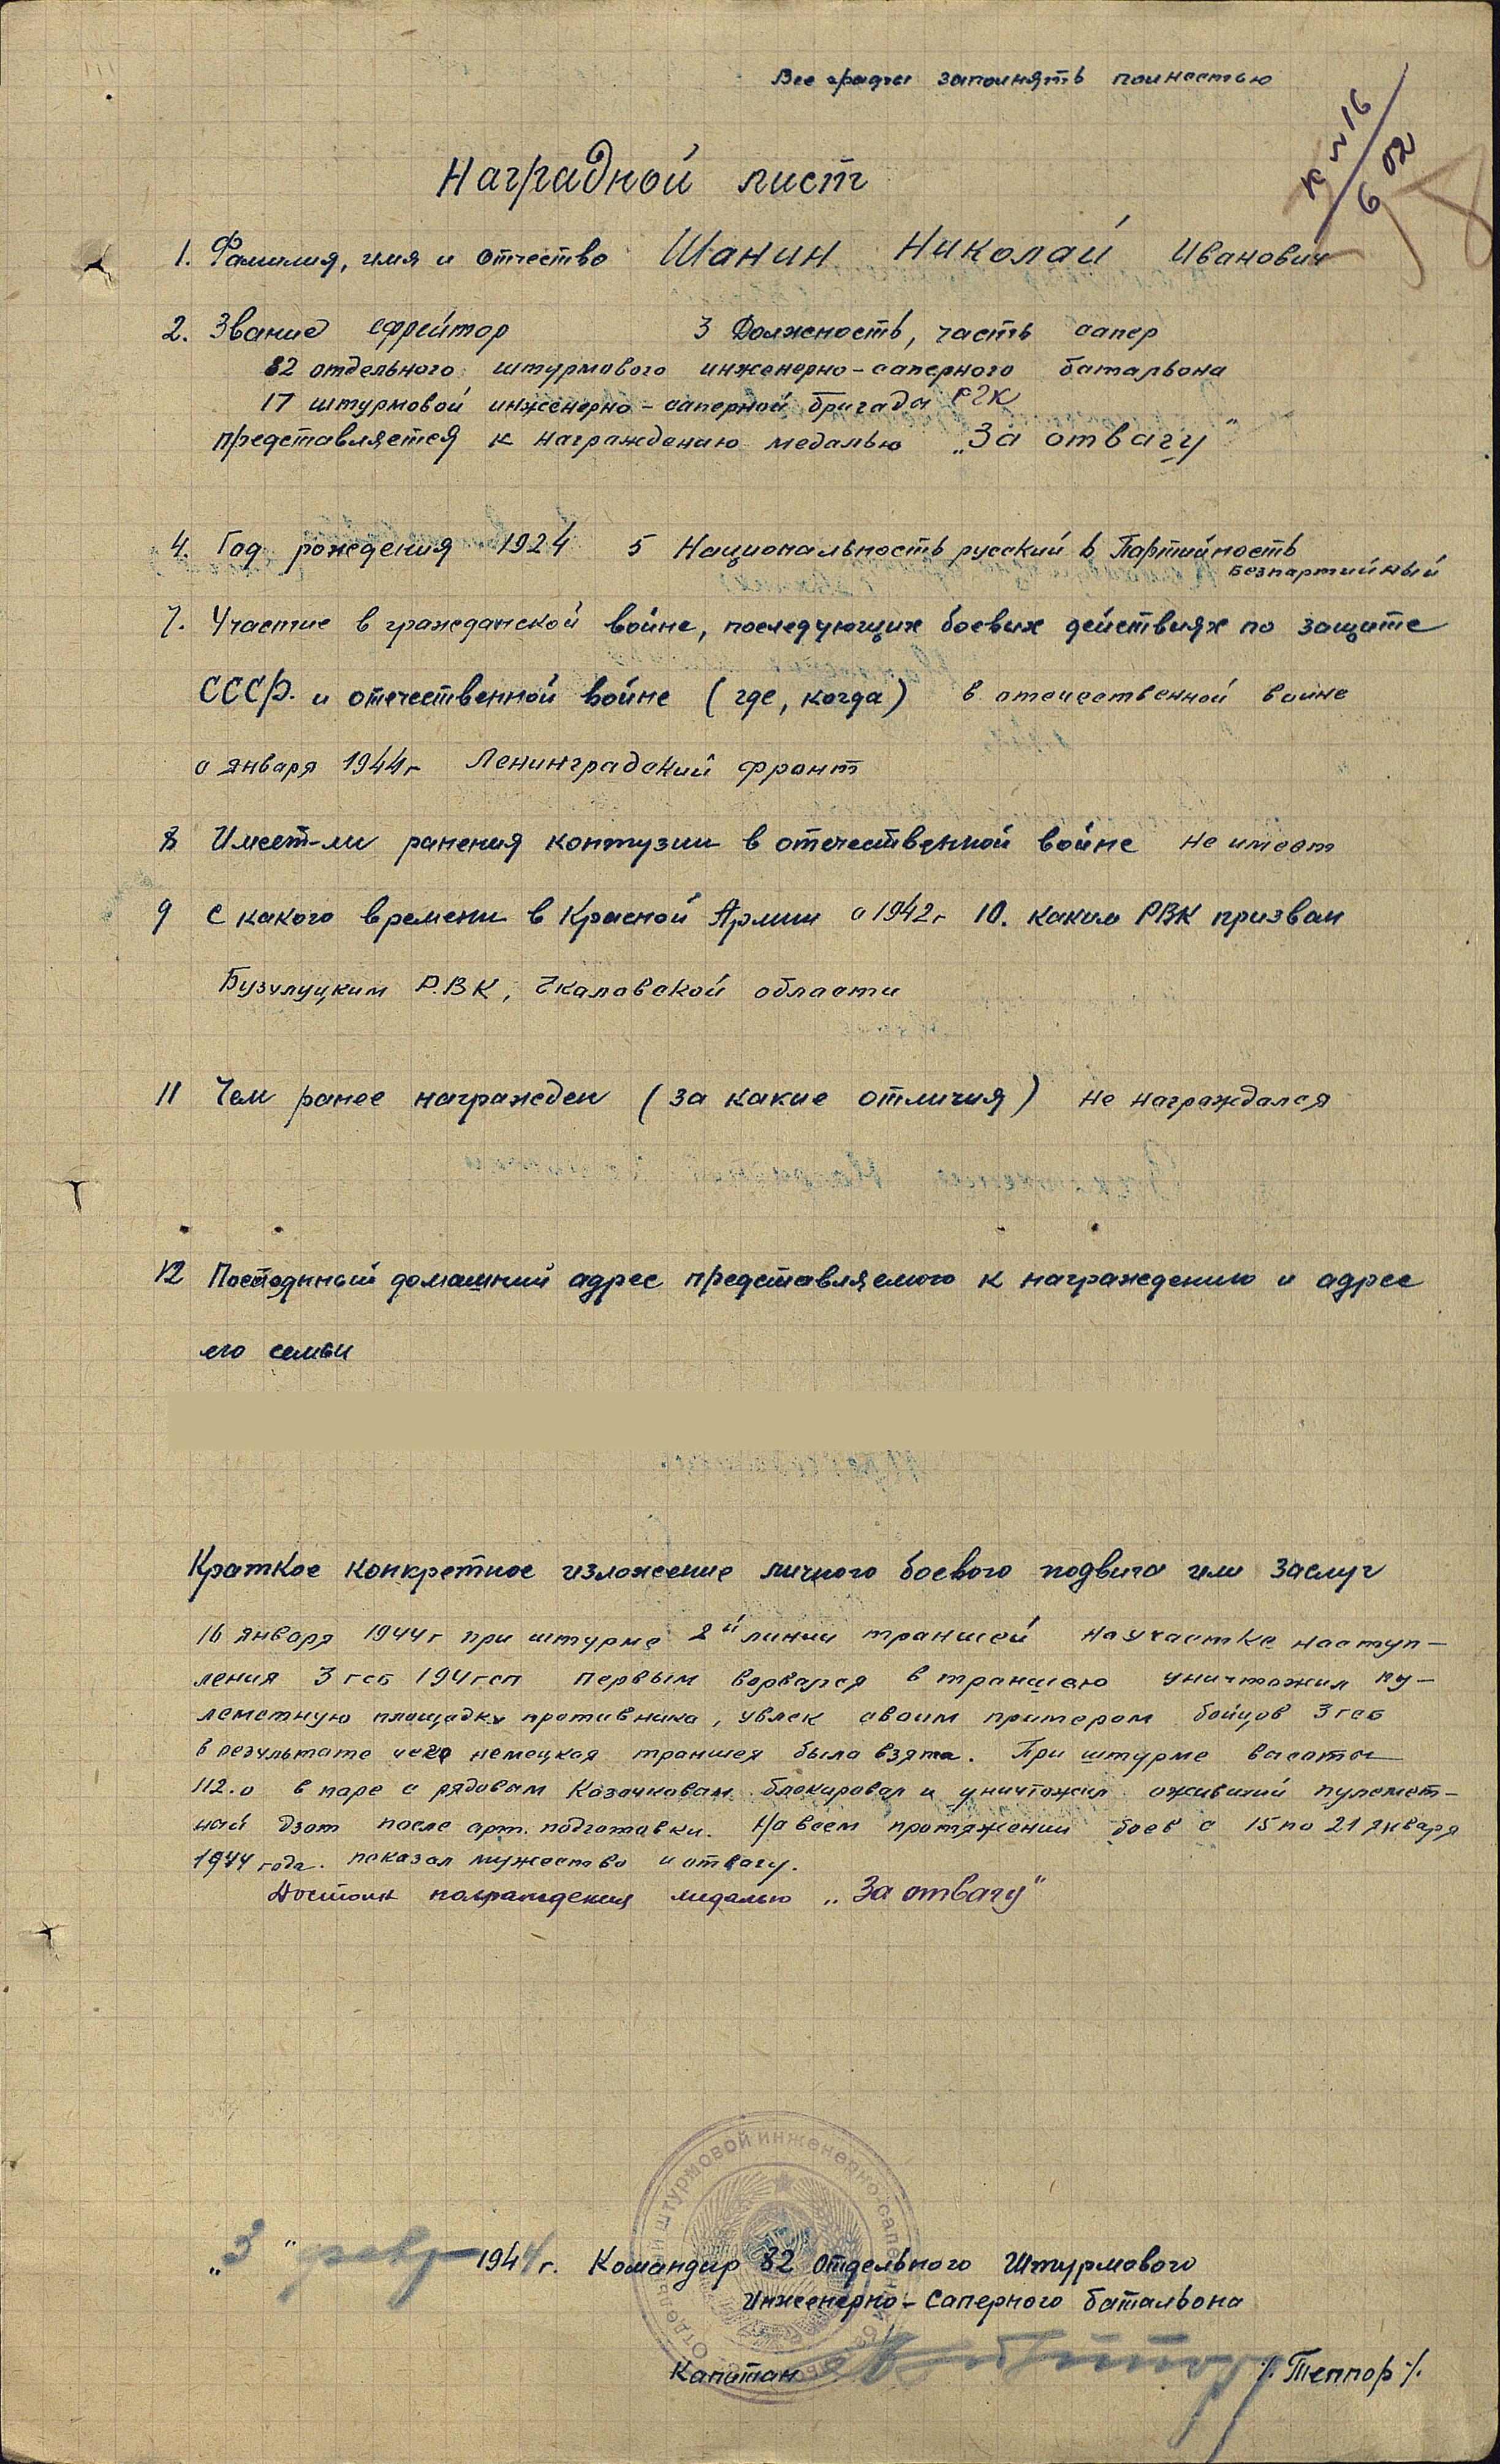 Все графы заполнять полностью
к № 16
6 02
Наградной лист
1. Фамилия, имя и отчество Шанин Николай Иванович
2. Звание ефрейтор 3 Должность, часть сапер
82 отдельного штурмового инженерно-саперного батальона
17 штурмовой инженерно-саперной бригады РГК
представляется к награждению медалью „За отвагу"
4. Год рождения 1924 5 Национальность русский 6 Партийность
безпартийный
7. Участие в гражданской войне, последующих боевых действиях по защите
СССР. и отечественной войне (где, когда) в отечественной войне
с января 1944г Ленинградский фронт
8 Имеет-ли ранения контузии в отечественной войне не имеет
9 С какого времени в Красной Армии с 1942г 10. каким РВК призван
Бузулуцким Р.В.К, Чкаловской области
11 Чем ранее награжден (за какие отличия) не награждался
12 Постоянный домашний адрес представляемого к награждению и адрес
его семьи
Краткое конкретное изложение личного боевого подвига или заслуг
16 января 1944г при штурме 2й линии траншей на участке наступ-
ления 3 гсб 194 гсп первым ворвался в траншею уничтожил пу-
леметную площадку противника, увлек своим примером бойцов 3 гсб
в результате чего немецкая траншея была взята. При штурме высоты
112.0 в паре с рядовым Козочковым блокировал и уничтожил оживший пулемет-
ный дзот после арт. подготовки. На всем протяжении боев с 15 по 21 января
1944 года. показал мужество и отвагу.
Достоин награждения медалью „За отвагу"
„3" февр 1944 г. Командир 82 Отдельного Штурмового
Инженерно-Саперного батальона
Капитан /.Теппор./
Отдельный штурмовой инженерно-саперный